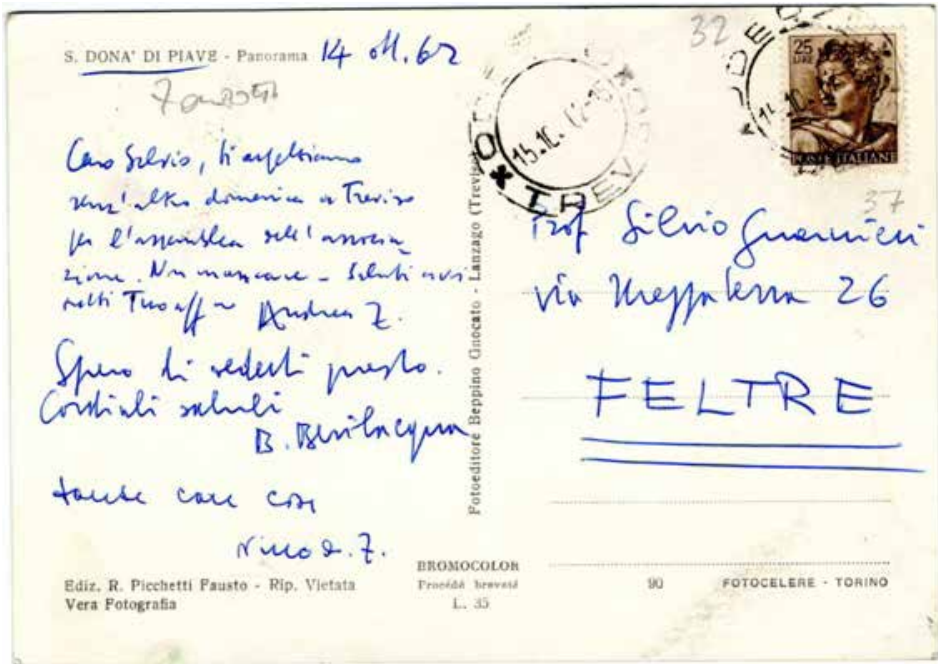 S. DONA' DI PIAVE - Panorama 14 ott. 62
32
Zanzotto
25
LIRE
POSTE ITALIANE
15.10.
TREV
37
Caro Silvio, ti aspettiamo
senz'altro domenica a Treviso
per l'assemblea dell'associa
zione. Non mancare - Saluti
Tuo aff Andrea Z.
Spero di vederti presto.
Cordiali saluti
B. Bevilacqua
tante care cose
Nico Z.
Fotoeditore Beppino Gnocato - Lanzago (Treviso)
Prof Silvio Guarnieri
via Mezzaterra 26
FELTRE
Ediz. R. Picchetti Fausto - Rip. Vietata
Vera Fotografia
BROMOCOLOR
Procédé breveté
L. 35
90 FOTOCELERE - TORINO